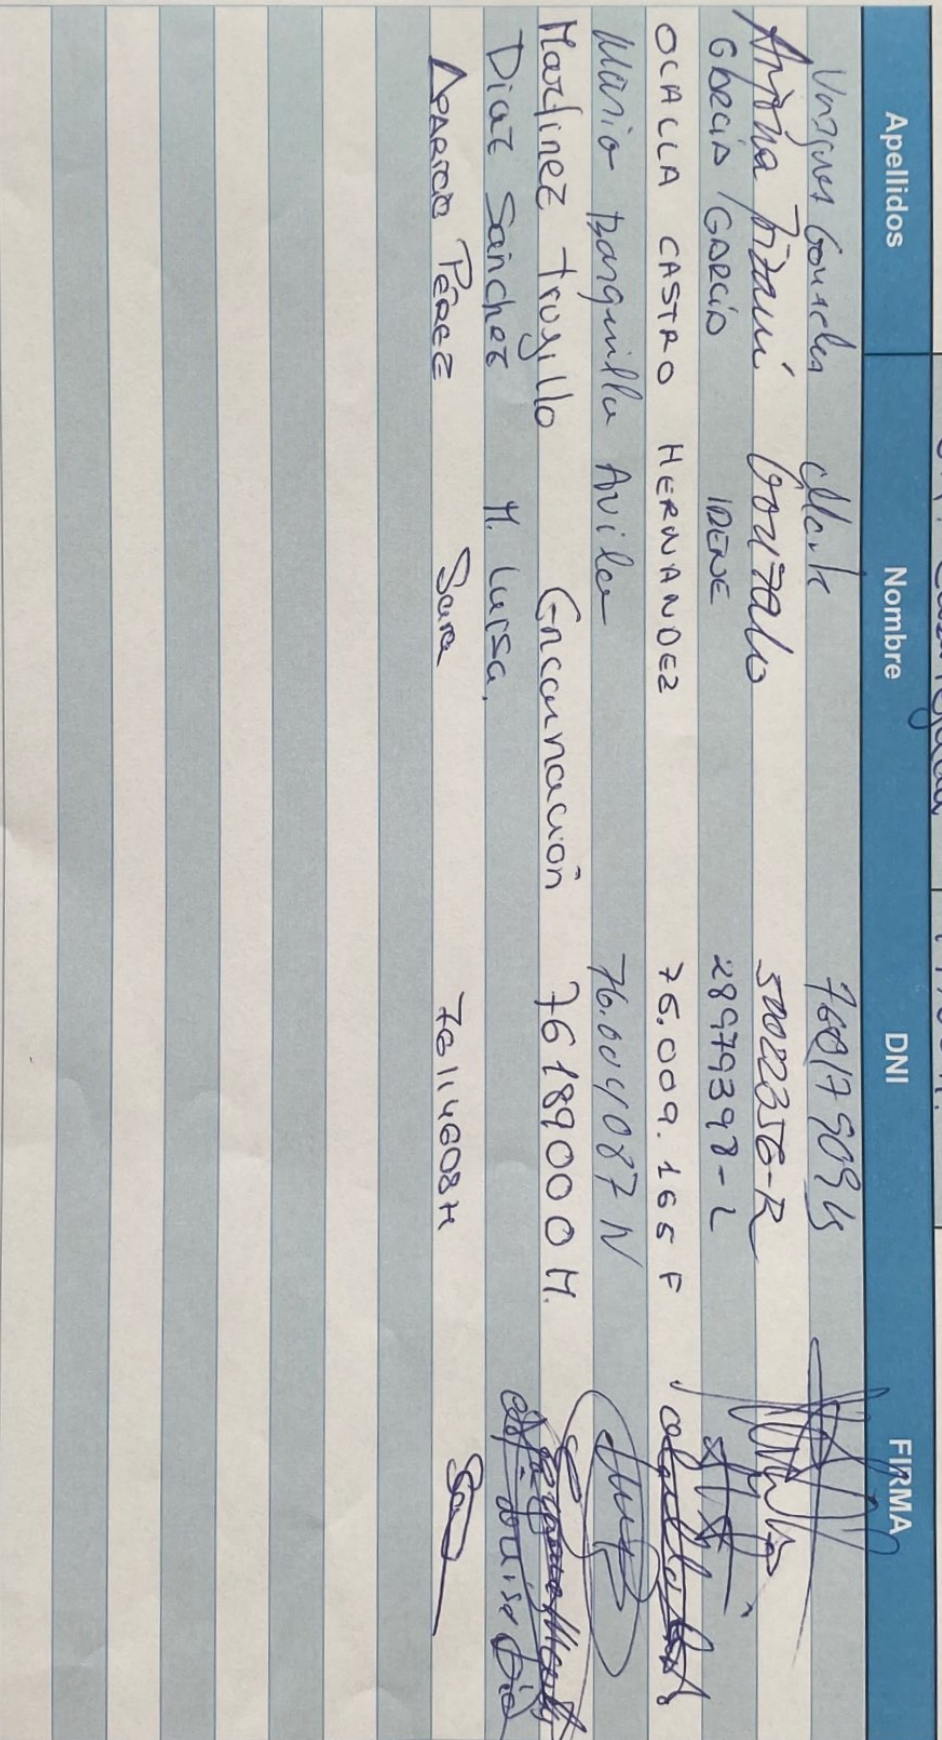 Apellidos Nombre DNI FIRMA
Gonzalez Mark
Gonzalo 5002235G-R
GARCIA GARCIA IRENE 28979398-L
OCALLA CASTRO HERNANDEZ 76.009.165 F
Mario Barquilla Avila 76.004087 N
Martinez Trujillo Encarnación 76189000 M.
Diaz Sánchez M. Luisa.
APARICIO PÉREZ Sara 76114608H